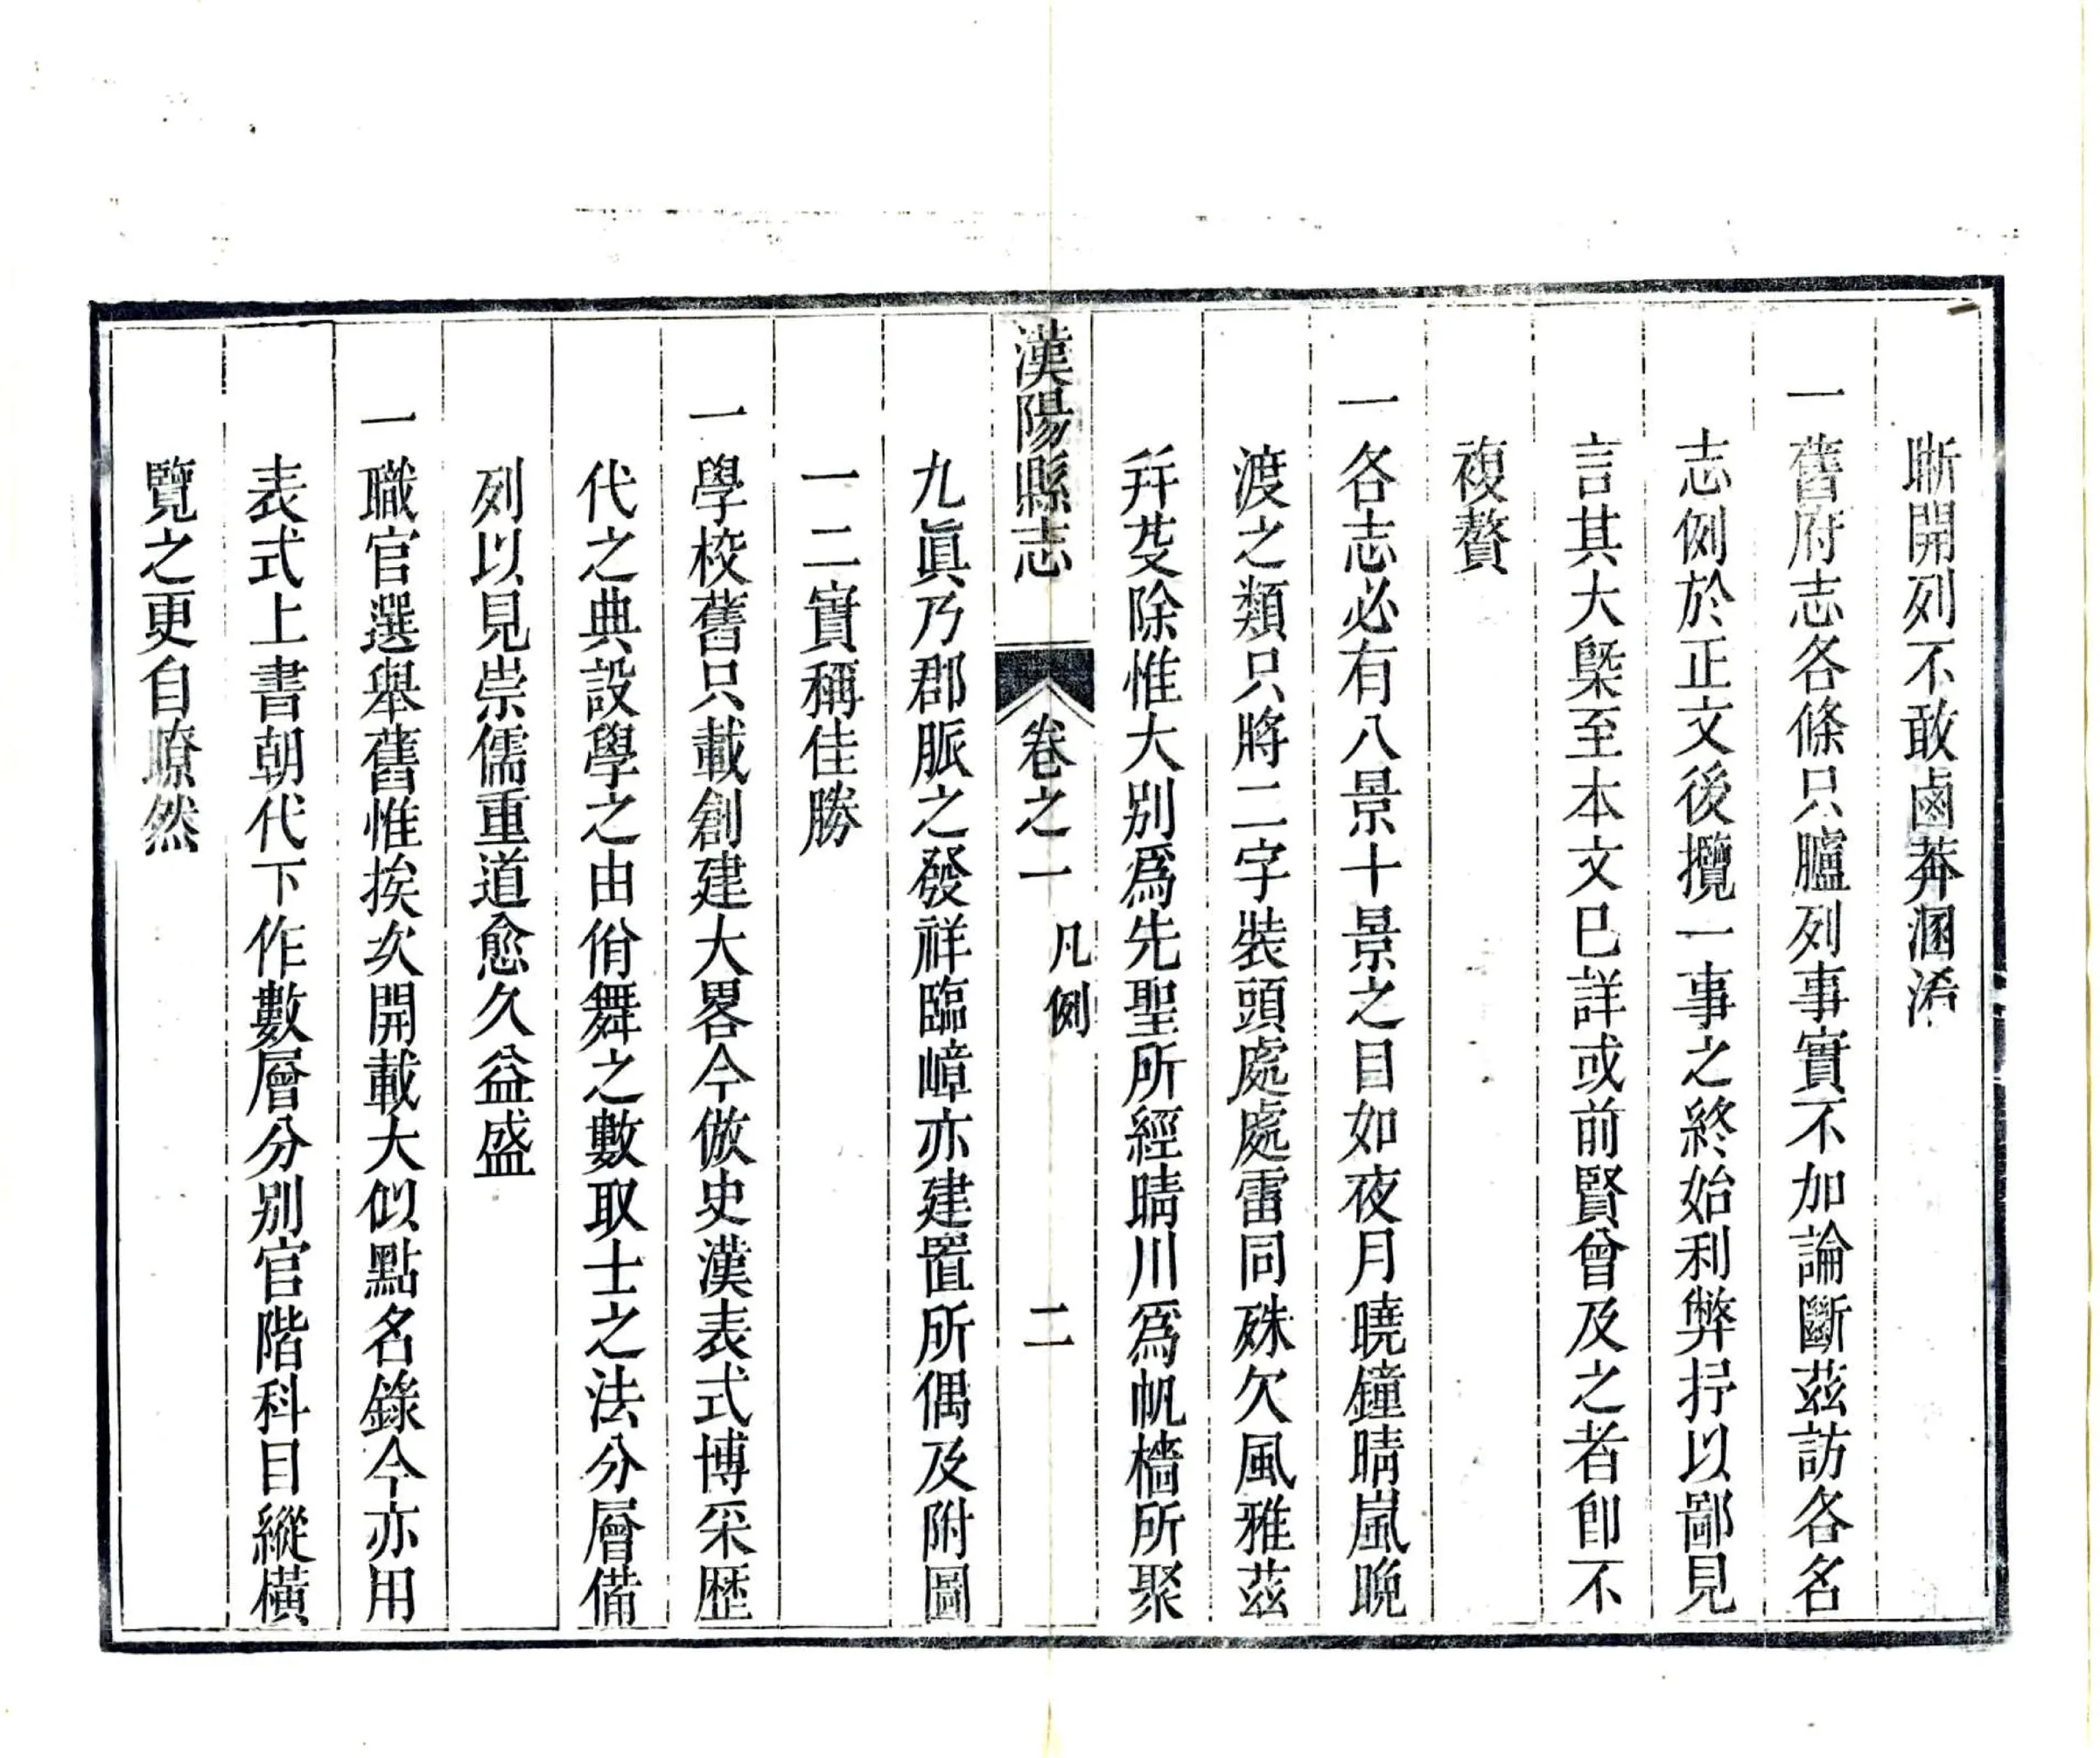 晰開列不敢鹵莽溷淆
一舊府志各條只臚列事實不加論斷茲訪各名
志例於正文後攬一事之終始利弊抒以鄙見
言其大槩至本文已詳或前賢曾及之者卽不
複贅
一各志必有八景十景之目如夜月曉鐘晴嵐晚
渡之類只將二字裝頭處處雷同殊欠風雅茲
幷芟除惟大别爲先聖所經晴川爲帆檣所聚
漢陽縣志 卷之一 凡例 二
九眞乃郡脈之發祥臨嶂亦建置所偶及附圖
一二實稱佳勝
一學校舊只載創建大畧今倣史漢表式博采歷
代之典設學之由佾舞之數取士之法分層備
列以見崇儒重道愈久益盛
一職官選舉舊惟挨次開載大似點名錄今亦用
表式上書朝代下作數層分别官階科目縱橫
覽之更自瞭然